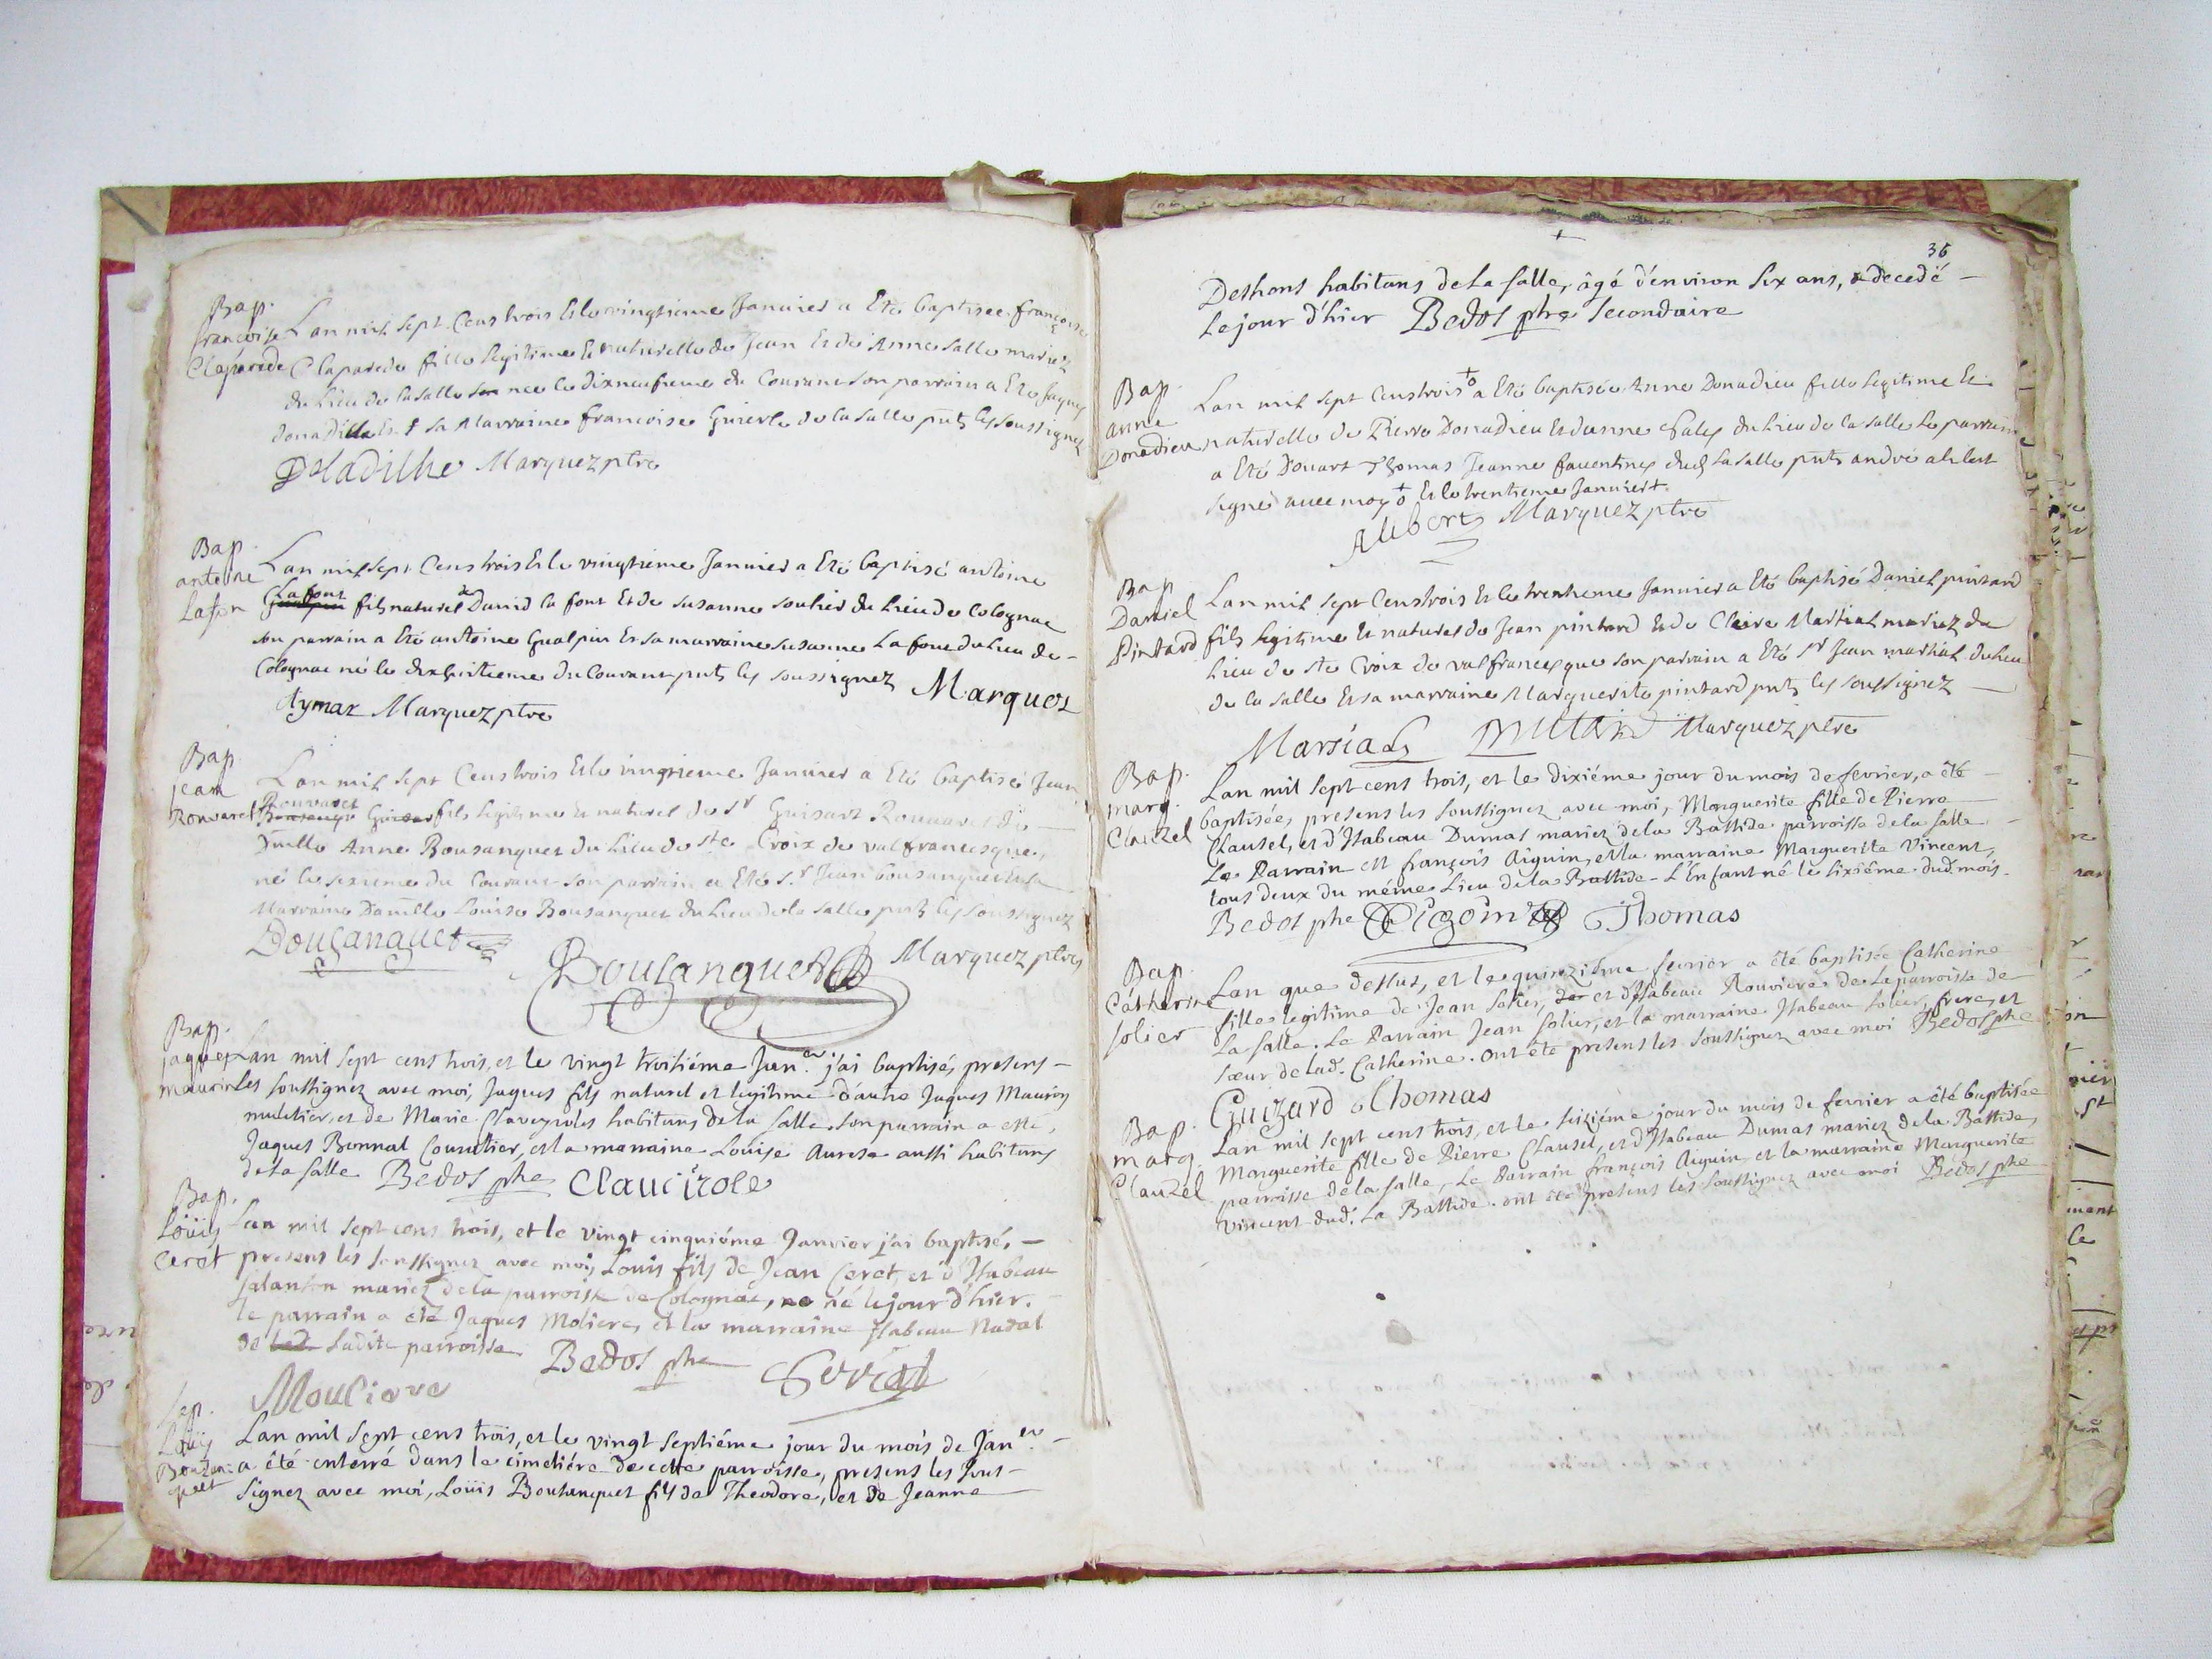 Bap.
francoise
Claparede
Lan mil sept Cens trois Et le vingtieme Janvier a Eté baptisee francoise
Claparede fille legitime Et naturelle de Jean Et de Anne Salle mariez
du Lieu de la salle nee le dixneufieme du Courant son parrain a Ete Jaques
donadille Et sa Marraine francoise Guierle de la salle pnts les soussignez
Deladilhe Marquez ptre
Bap.
antoine
lafon
Lan mil sept Cens trois Et le vingtieme Janvier a Eté baptisé antoine
La font fils naturel de David la font Et de Susanne soulier du Lieu de Colognac
son parrain a Eté antoine Gualpin Et sa marraine Susanne La font du Lieu de -
Colognac né le dixhuitieme du Courant pnts les soussignez Marques
Aymar Marquez ptre
Bap.
jean
Rouvaret
Lan mil sept Cens trois Et le vingtieme Janvier a Eté baptisé Jean
Rouvaret fils legitime Et naturel de Sr Guisart Rouvaret de
Dmlle Anne Bousanquet du Lieu de Ste Croix de valfrancesque,
né le sexieme du Courant son parrain a Eté Sr Jean bousanquet Et sa
Marraine Damlle Louise Bousanquet du Lieu de la salle pnts les soussignez
Bousanquet
Bousanquet Marquez ptre
Bap.
jaques
maurin
Lan mil sept cens trois, et le vingt troisiéme Janer. j'ai baptisé, presens -
les soussignez avec moi, Jaques fils naturel et legitime d'autre Jaques Maurin
muletier, et de Marie Claveyroles habitans de la Salle. son parrain a esté,
Jaques Bonnal Couratier, et la marraine Louise Aurese aussi habitans
de la salle Bedos phe Claveirole
Bap.
Loüis
Ceret
Lan mil sept cens trois, et le vingt cinquiéme Janvier j'ai baptisé, -
presens les soussignez avec moi, Louis fils de Jean Ceret, et d'Isabeau
Salanson mariez de la parroisse de Colognac, né le jour d'hier.
le parrain a été Jaques Moliere, et la marraine Isabeau Nadal
de ladite parroisse Bedos phe
Mouliere
Sep.
Loüis
Bouzan:
quet
Lan mil sept cens trois, et le vingt septiéme jour du mois de Janer. -
a été enterré dans le cimetiére de cette parroisse, presens les sous-
signez avec moi, Loüis Bousanquet fils de Theodore, et de Jeanne
36
Deshons habitans de la salle, âgé d'environ six ans, decedé -
le jour d'hier Bedos phe secondaire
Bap.
anne
Donadieu
Lan mil sept Cens trois a Eté baptisée Anne Donadieu fille legitime Et
naturelle de Pierre Donadieu Et danne Pales du Lieu de la salle le parrain
a Eté Douart Thomas Jeanne faventines dud la salle pnts andré alibert
signé avec moy Et le trentieme Janvier
Alibert Marquez ptre
Bap.
Daniel
Pintard
Lan mil sept Cens trois Et le trentieme Janvier a Eté baptisé Daniel pintard
fils legitime Et naturel de Jean pintard Et de Claire Martial mariez du
Lieu de ste Croix de valfrancesque son parrain a Eté sr Jean martial du Lieu
de la salle Et sa marraine Marguerite pintard pnts les soussignez
Marsial Pintard Marquez ptre
Bap.
marg.
Clauzel
Lan mil sept cens trois, et le dixiéme jour du mois de fevrier, a été
baptisée, presens les soussignez avec moi, Marguerite fille de Pierre
Clausel, et d'Isabeau Dumas mariez de la Bastide parroisse de la salle
Le Parrain est françois Aiguin, et la marraine Marguerite Vincent,
tous deux du même Lieu de la Bastide - L'Enfant né le sixiéme dud. mois.
Bedos phe Eigoin Thomas
Bap.
Catherine
solier
Lan que dessus, et le quinziéme fevrier a été baptisée Catherine
fille legitime de Jean Solier, et d'Isabeau Rouviere de la parroisse de
La salle. Le Parrain Jean Solier, et la marraine Isabeau solier, frere, et
sœur de lad. Catherine. ont été presens les soussignez avec moi Bedos phe
Guizard Thomas
Bap.
marg.
Clauzel
Lan mil sept cens trois, et le seiziéme jour du mois de fevrier a été baptisée
Marguerite fille de Pierre Clausel, et d'Isabeau Dumas mariez de la Bastide,
parroisse de la salle, Le Parrain françois Aiguin, et la marraine Marguerite
Vincent dud. La Bastide. ont été presens les soussignez avec moi Bedos phe